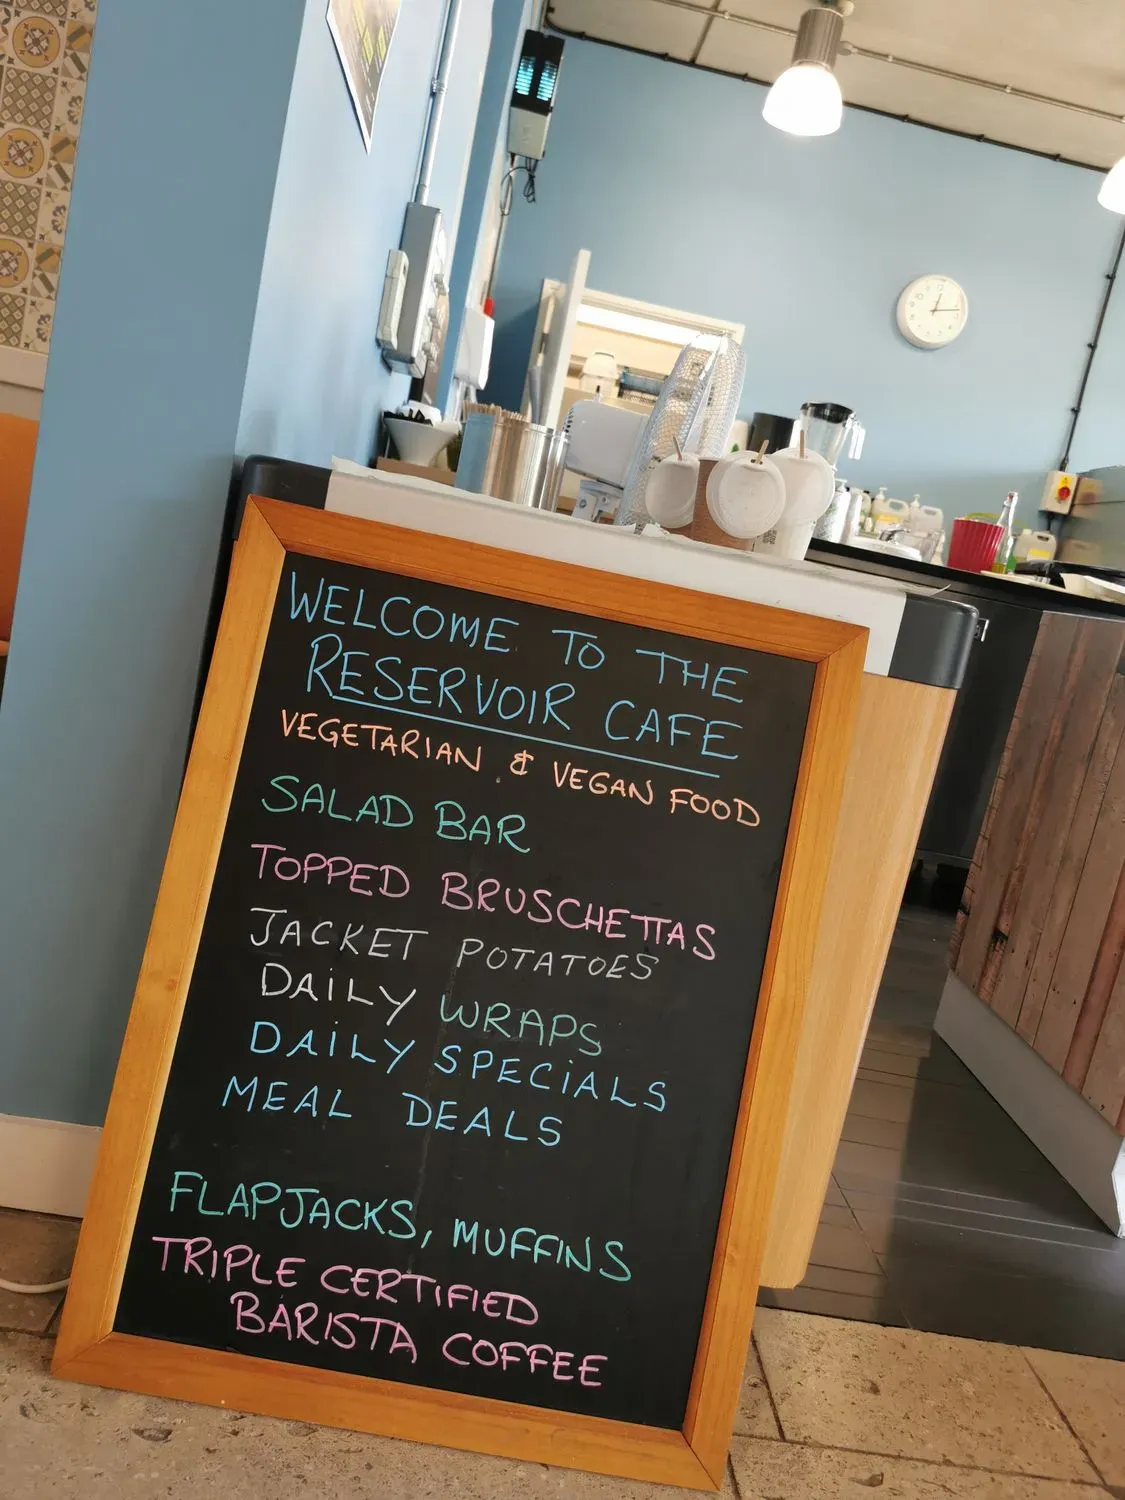 WELCOME TO THE
RESERVOIR CAFE
VEGETARIAN & VEGAN FOOD
SALAD BAR
TOPPED BRUSCHETTAS
JACKET POTATOES
DAILY WRAPS
DAILY SPECIALS
MEAL DEALS
FLAPJACKS, MUFFINS
TRIPLE CERTIFIED
BARISTA COFFEE